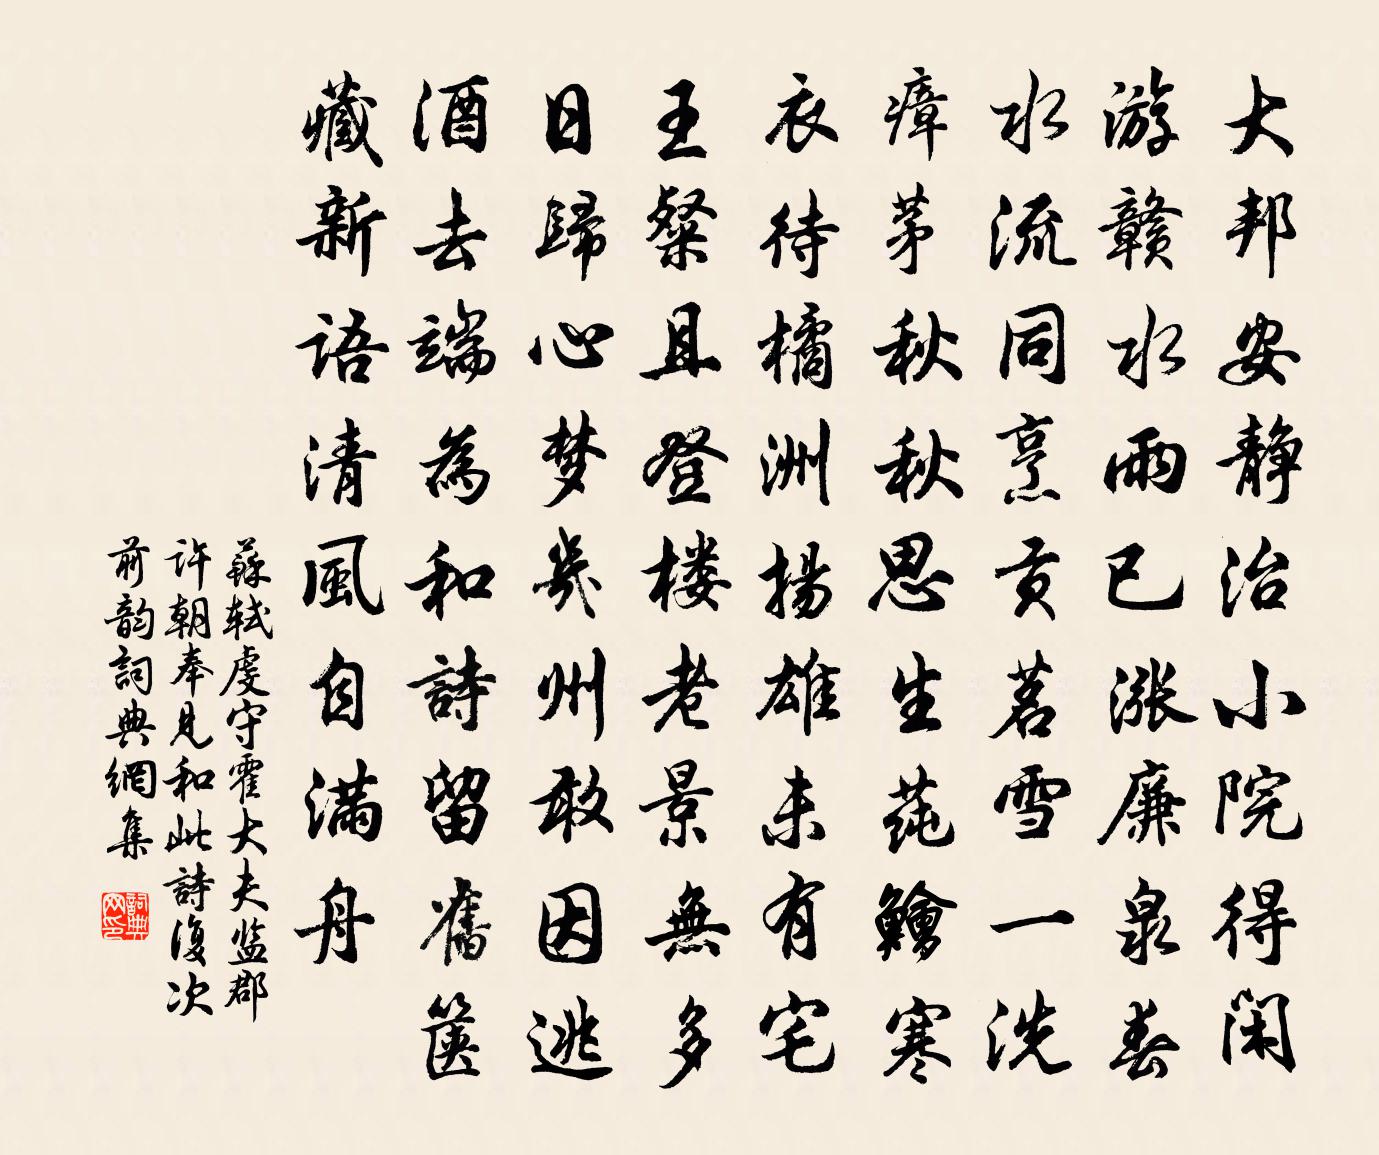 大邦安静治小院得闲
游赣水雨已涨廉泉春
水流同烹贡茗雪一洗
瘴茅秋秋思生莼鱠寒
衣待橘洲揚雄未有宅
王粲且登楼老景無多
日歸心梦幾州敢因逃
酒去端為和詩留舊箧
藏新语清風自满舟
蘇轼虔守霍大夫监郡
许朝奉見和此詩復次
前韵詞典網集
詞典网印